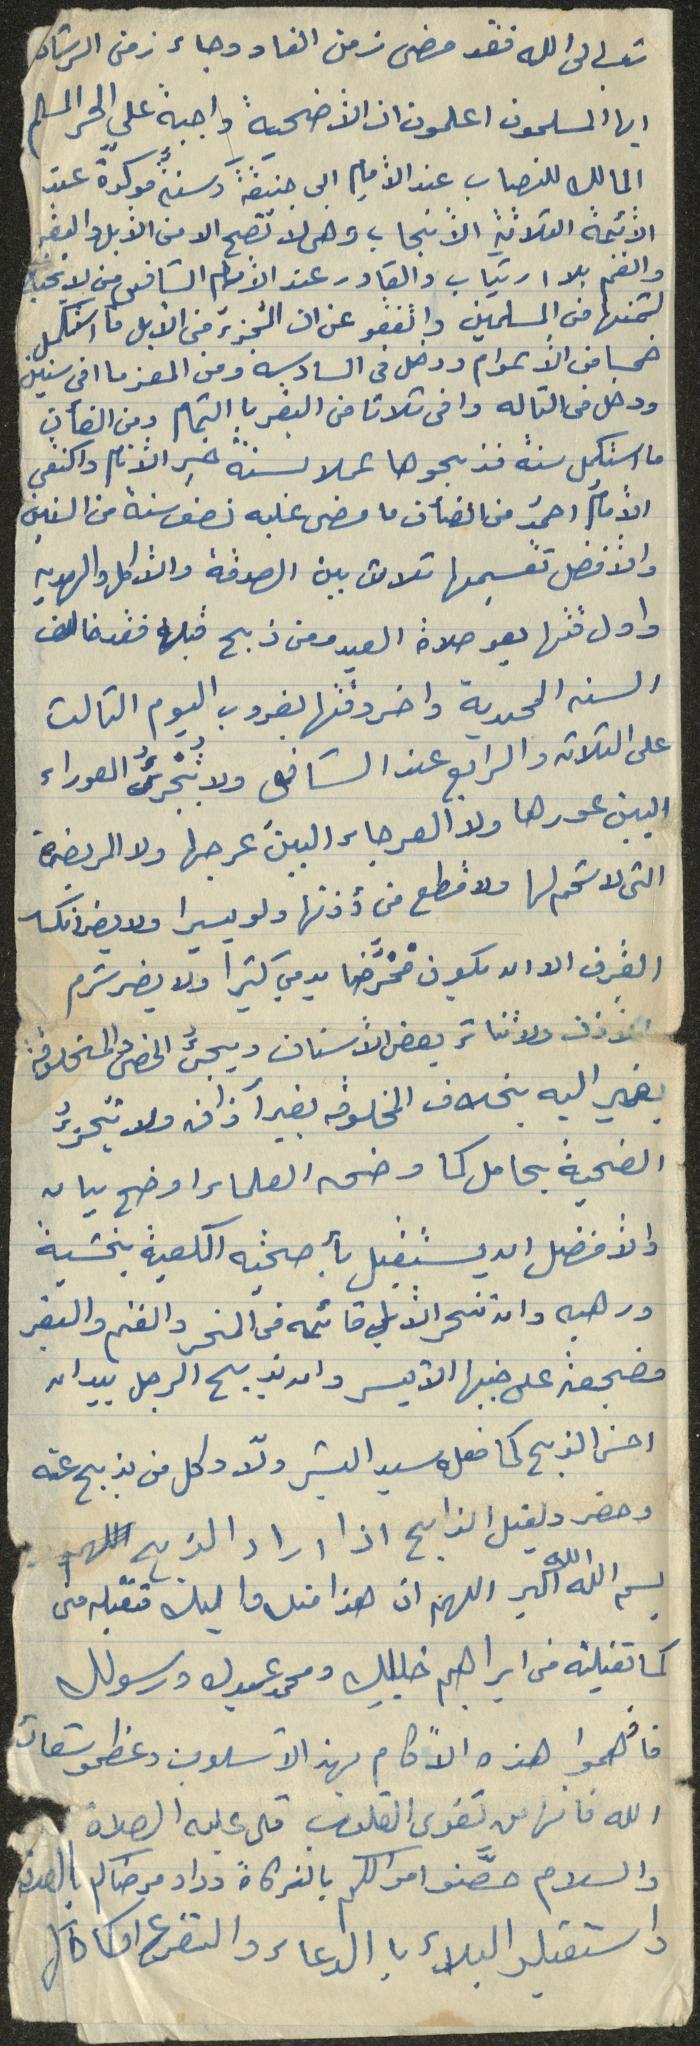 تعالى الله فقد مضى زمن الفساد وجاء زمن الرشاد
ايها المسلمون اعلمون ان الأضحية واجبة على الحر المسلم
المالك للنصاب عند الأمام ابى حنيفة وسنة موكدة عند
الأئمة الثلاثة الأنجاب وهى لا تصح الا من الأبل والبقر
والغنم بلا ارتياب والقادر عند الأمام الشافعى من لا يحتاج
لثمنها من المسلمين واتفقو عن ان المجزئ من الابل ما استكمل
خمسا من الأعوام ودخل فى السادسه ومن المعز ما اوفى سنتين
ودخل فى الثالثه وافى ثلاثا من البقر با التمام ومن الضأن
ما استكمل سنة فذبحوها عملا بسنة خير الأنام واكتفى
الأمام احمد من الضأن ما مضى عليه نصف سنة من السنين
والأفضل تقسيمها ثلاث بين الصدقة والأكل والهديه
واول وقتها بعد صلاة العيد ومن ذبح قبله فقد خالف
السنه المحمدية واخر وقتها بغروب اليوم الثالث
على الثلاثه والرابع عند الشافعى ولا تُجْزئُ العوراء
البين عورها ولا العرجاء البين عرجها ولا المريضة
التى لا شحم لها ولا قطع من أذنها ولو يسيرا ولا يضر انكسار
القرن الا ان يكون يدمي كثيرا ولا يضر شرم
الأذن ولا تناثر بعض الأسنان ويجزئ الخصى والمخلوقة
بغير اليه بخلاف المخلوقه بغير آذان ولا تجزئُ
الضحية بحامل كما وضحه العلماء اوضح بيان
والأفضل ان يستقبل بأضحيته الكعبة بخشية
ورهبه وان تنحر الأبل قائمه فى المنحر والغنم والبقر
مضجعة على جنبها الأيسر وان يذبح الرجل بيد ان
احسن الذبح كما فعله سيد البشر ولّا وكل من يذبح عنه
وحضر وليقل الذابح اذا اراد الذبح
بسم الله الله اكبر اللهم ان هذا منك واليك فتقبله منى
كما تقبلته من ابراهيم خليلك ومحمد عبدك ورسولك
فافهموا هذه الأحكام بهذ الأسلوب وعظمو شعائر
الله فانها من تقوى القلوب قال عليه الصلاة
والسلام حصّنو اموالكم بالزكاة وداو مرضاكم بالصدقة
واستقبلو البلاء با الدعاء والتضرع